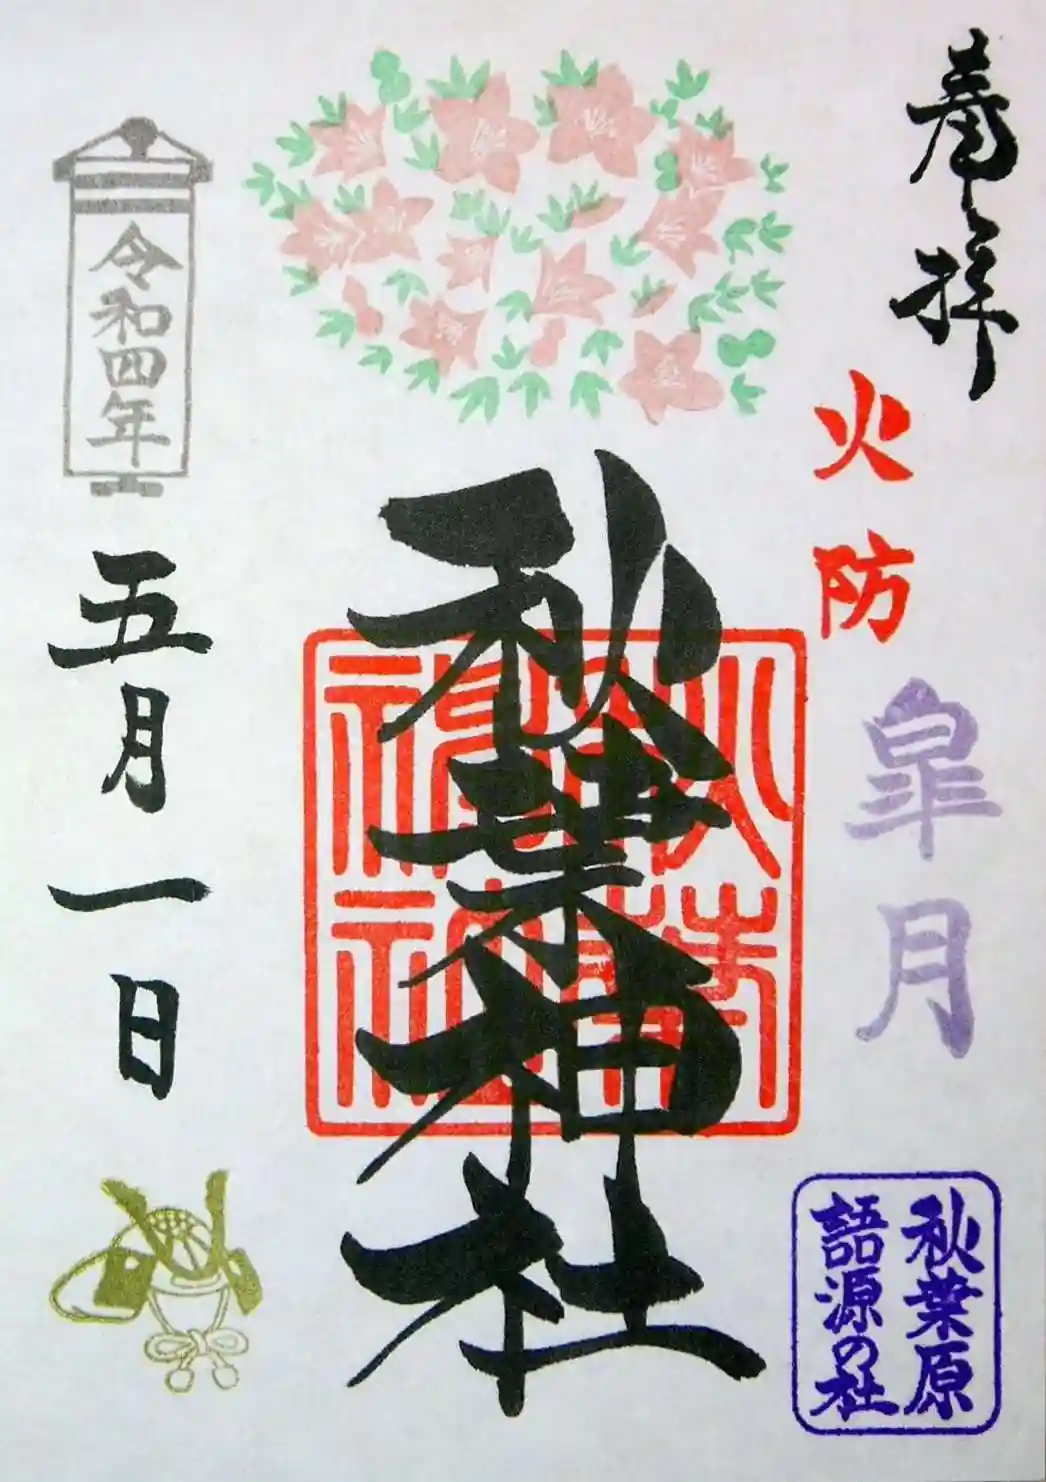 奉拝
火防
皐月
秋葉原
語源の社
秋葉神社
令和四年
五月一日